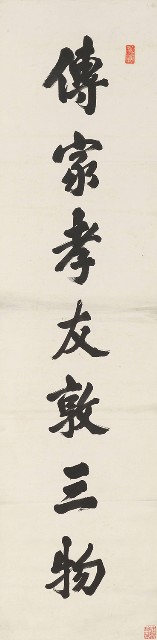 傳家孝友敦三物